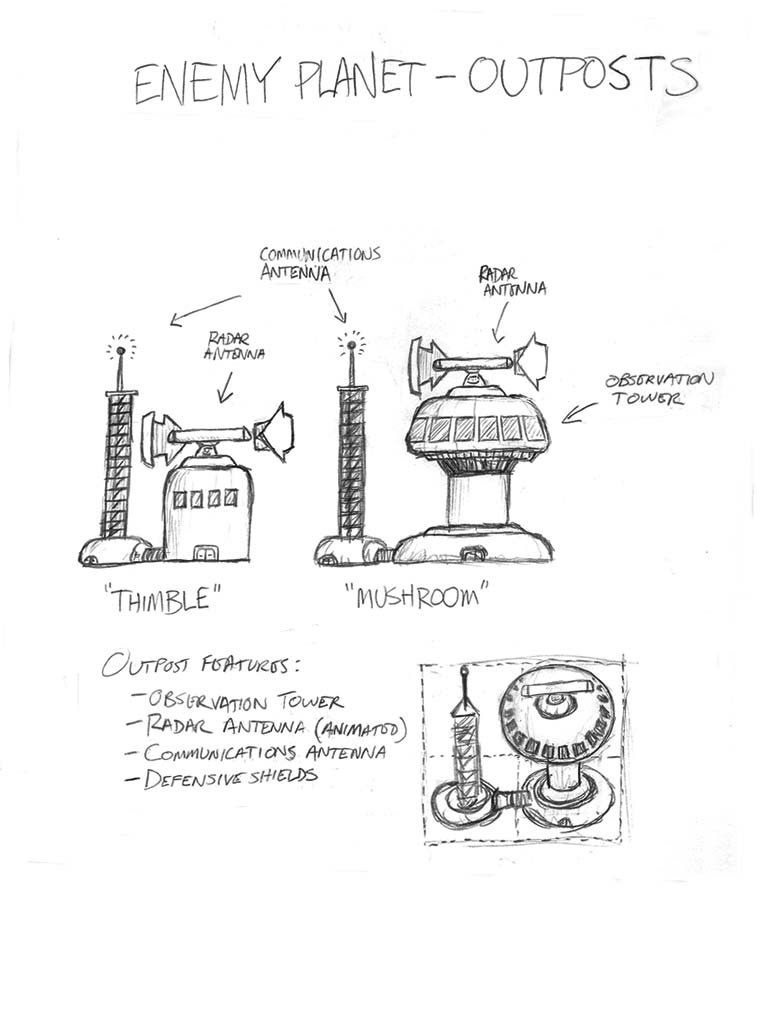 ENEMY PLANET - OUTPOSTS
COMMUNICATIONS
ANTENNA
RADAR
ANTENNA
RADAR
ANTENNA
OBSERVATION
TOWER
"THIMBLE"
"MUSHROOM"
OUTPOST FEATURES:
- OBSERVATION TOWER
- RADAR ANTENNA (ANIMATED)
- COMMUNICATIONS ANTENNA
- DEFENSIVE SHIELDS